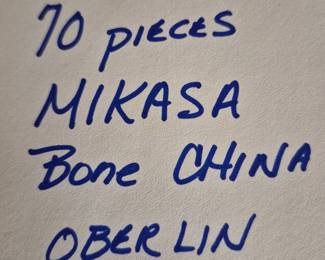 70 PIECES
MIKASA
Bone CHINA
OBERLIN